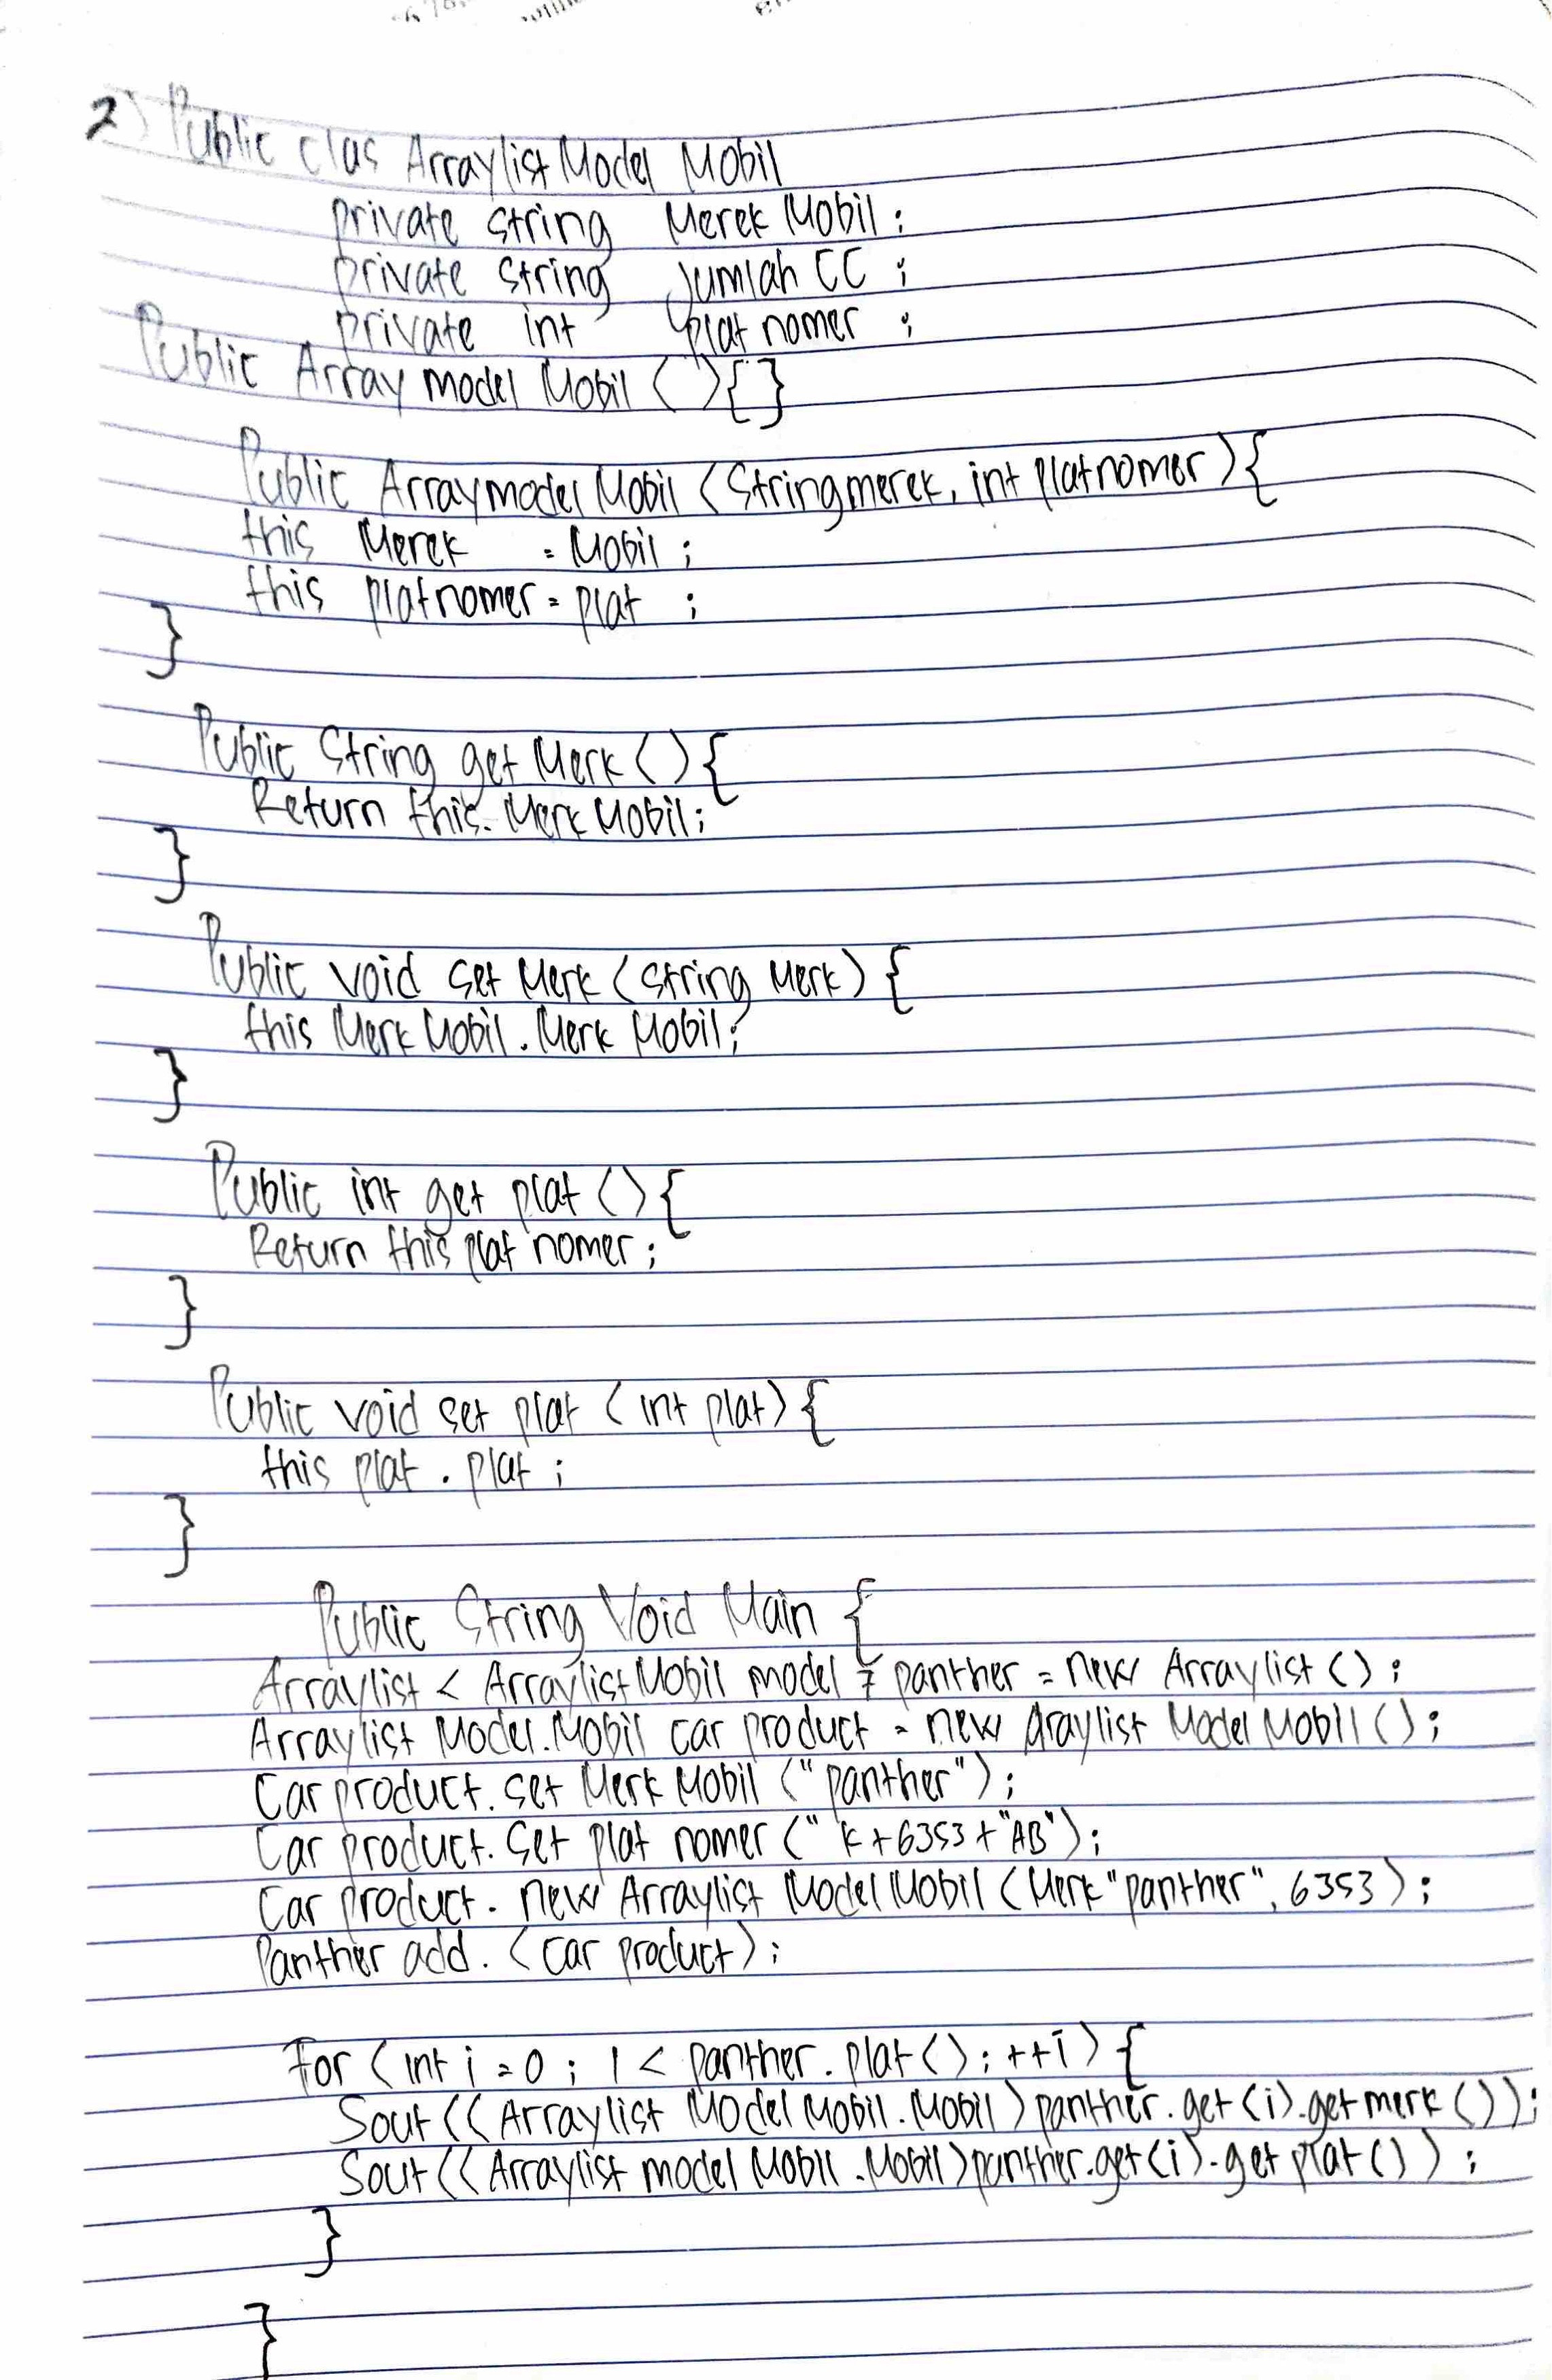 2) Public clas Arraylist Model Mobil
private string Merek Mobil ;
private string Jumlah CC ;
private int plat nomer ;
Public Array model Mobil ( ) { }
Public Array model Mobil ( String merek, int platnomer ) {
this Merek = Mobil ;
this platnomer = plat ;
}
Public String get Merk ( ) {
Return this. Merk Mobil ;
}
Public void set Merk ( string Merk ) {
this Merk Mobil . Merk Mobil ;
}
Public int get plat ( ) {
Return this plat nomer ;
}
Public void set plat ( int plat ) {
this plat . plat ;
}
Public String Void Main {
Arraylist < Arraylist Mobil model > panther = new Arraylist ( ) ;
Arraylist Model . Mobil car product = new Araylist Model Mobil ( ) ;
Car product . set Merk Mobil ( "panther" ) ;
Car product . Set plat nomer ( " K + 6353 + "AB" ) ;
Car product . new Arraylist Model Mobil ( Merk "panther", 6353 ) ;
Panther add . ( car product ) ;
For ( int i = 0 ; 1 < panther . plat ( ) ; ++i ) {
Sout ( ( Arraylist Model Mobil . Mobil ) panther . get ( i ) . get merk ( ) ) ;
Sout ( ( Arraylist model Mobil . Mobil ) panther . get ( i ) . get plat ( ) ) ;
}
}